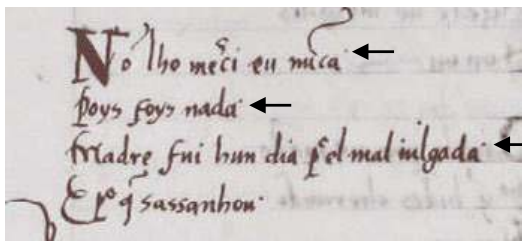 Nō lho mẽci eu mĩca
poys foys nada
Madre fui hun dia p̃el mal iulgada
E p̃o q̃ sassanhou